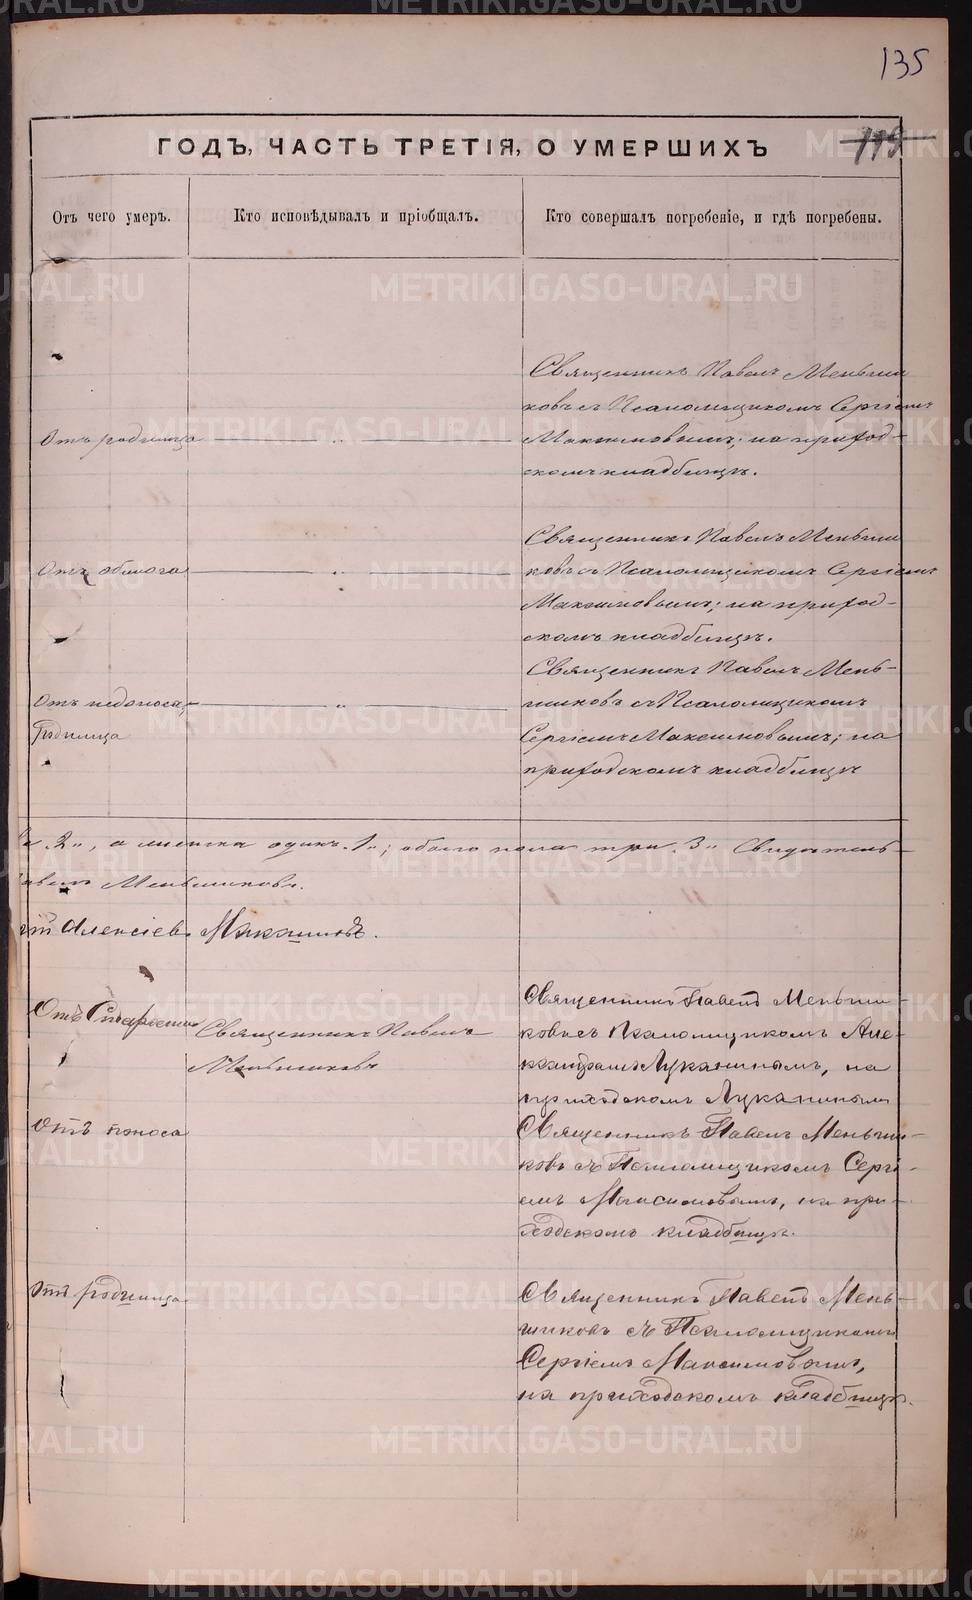 135
ГОДЪ, ЧАСТЬ ТРЕТІЯ, О УМЕРШИХЪ
119
Отъ чего умеръ.
Кто исповѣдывалъ и пріобщалъ.
Кто совершалъ погребеніе, и гдѣ погребены.
Отъ родимца
Священникъ Павелъ Меньши
ковъ съ Псаломщикомъ Сергіемъ
Максимовымъ; на приход-
скомъ кладбищѣ.
Отъ
Священникъ Павелъ Меньши
ковъ съ Псаломщикомъ Сергіемъ
Максимовымъ; на приход-
скомъ кладбищѣ.
Отъ недоноса,
Родимца
Священникъ Павелъ Мень-
шиковъ съ Псаломщикомъ
Сергіемъ Максимовымъ; на
приходскомъ кладбищѣ
2, а женска одинъ 1; обоего пола три 3. Свидѣтель-
Меньшиковъ.
Алексіевъ
Отъ Старости
Священникъ Павелъ
Меньшиковъ
Священникъ Павелъ Меньши-
ковъ съ Псаломщикомъ Але-
ксандромъ Луканинымъ, на
приходскомъ Луканинымъ
Отъ поноса
Священникъ Павелъ Меньши-
ковъ съ Псаломщикомъ Сергі-
емъ Максимовымъ, на при-
ходскомъ кладбищѣ.
Отъ родимца
Священникъ Павелъ Мень-
шиковъ съ Псаломщикомъ
Сергіемъ Максимовымъ,
на приходскомъ кладбищѣ.
METRIKI.GASO-URAL.RU